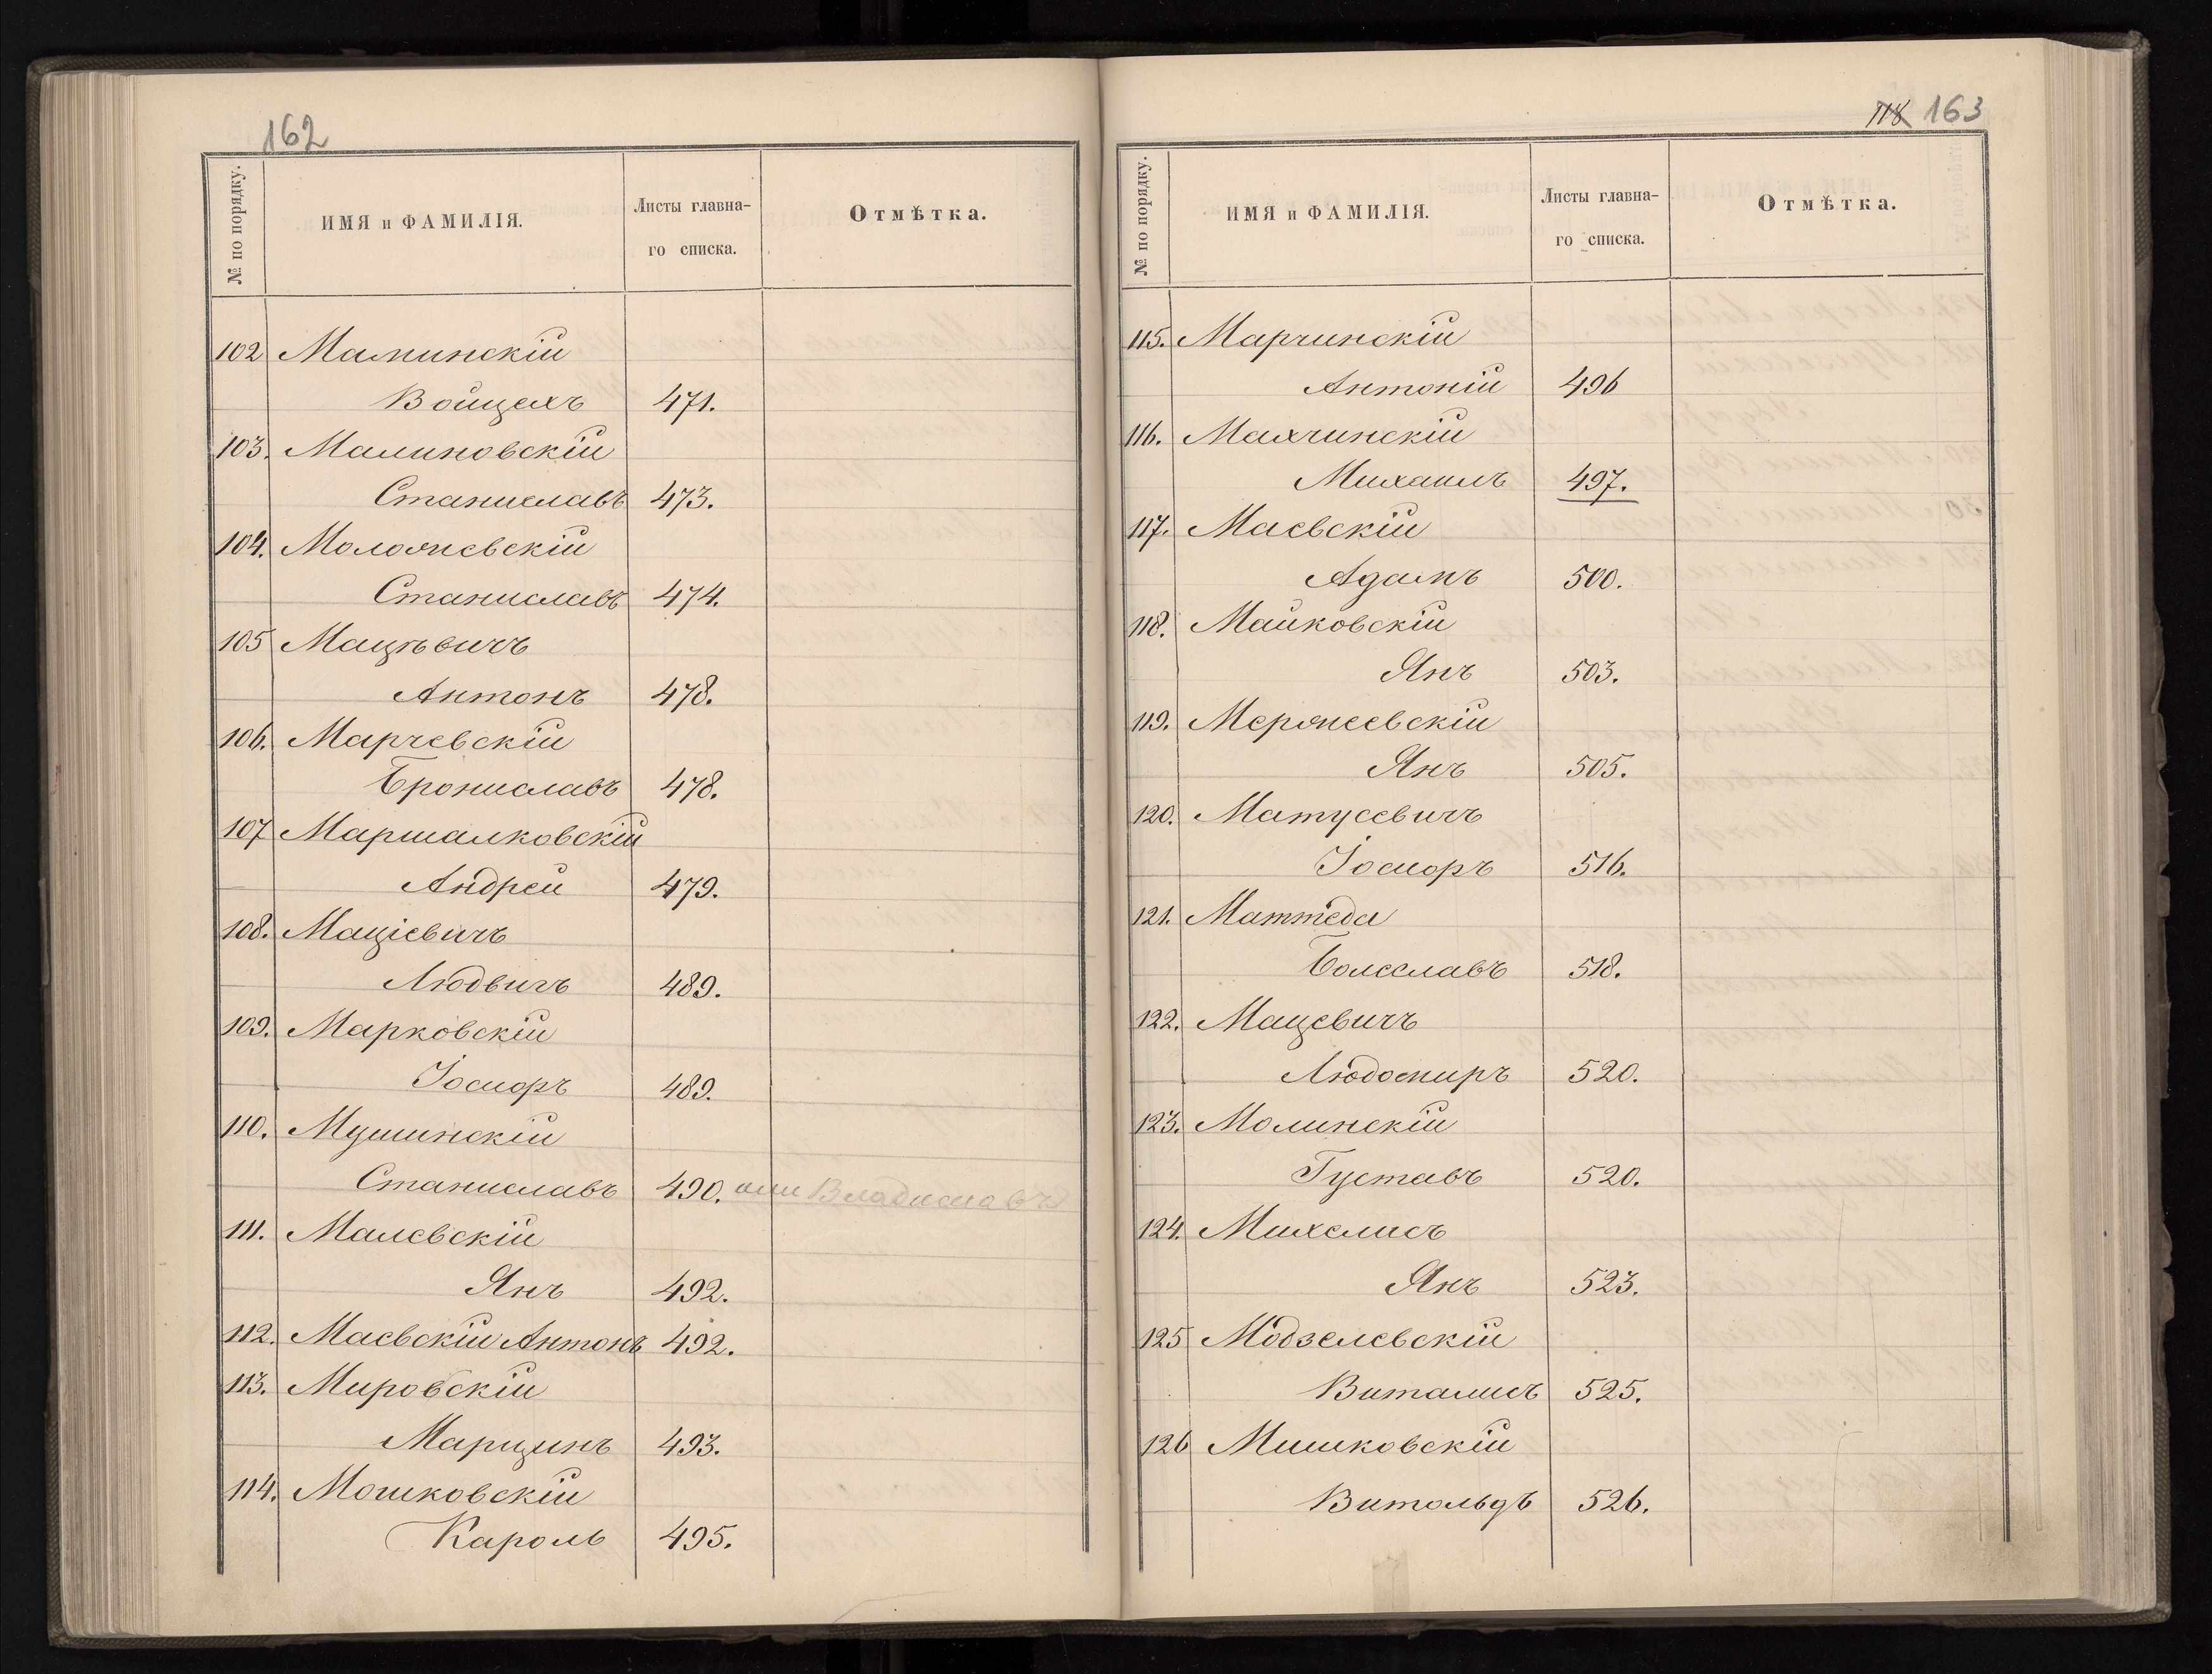 162
№ по порядку.
ИМЯ и ФАМИЛІЯ.
Листы главна-
го списка.
Отмѣтка.
102 Маминскій
Войцехъ 471.
103. Малиновскій
Станиславъ 473.
104. Моложневскій
Станиславъ 474.
105 Мацѣвичъ
Антонъ 478.
106. Марчевскій
Брониславъ 478.
107 Маршалковскій
Андрей 479.
108. Маціевичъ
Людвигъ 489.
109. Марковскій
Іосифъ 489.
110. Мушинскій
Станиславъ 490. или Владиславъ
111. Малевскій
Янъ 492.
112. Маевскій Антонъ 492.
113. Мировскій
Марцинъ 493.
114. Мошковскій
Кароль 495.
118 163
№ по порядку.
ИМЯ и ФАМИЛІЯ.
Листы главна-
го списка.
Отмѣтка.
115. Марчинскій
Антоній 496
116. Махчинскій
Михаилъ 497.
117. Маевскій
Адамъ 500.
118. Майковскій
Янъ 503.
119. Мержеевскій
Янъ 505.
120. Матусевичъ
Іосифъ 516.
121. Маттеда
Болеславъ 518.
122. Мацевичъ
Людомиръ 520.
123. Молинскій
Густавъ 520.
124. Михелисъ
Янъ 523.
125 Модзелевскій
Виталисъ 525.
126 Мишковскій
Витольдъ 526.